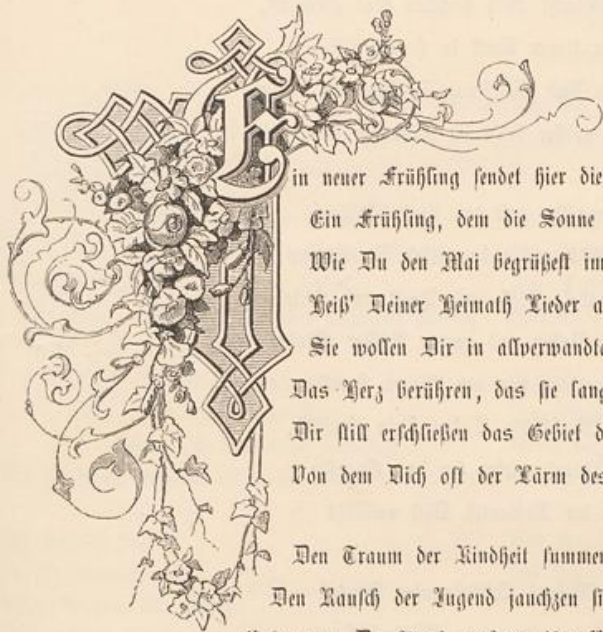 Ein neuer Frühling sendet hier die
Ein Frühling, dem die Sonne
Wie Du den Mai begrüßest im
Heiß' Deiner Heimath Lieder a
Sie wollen Dir in allverwandte
Das Herz berühren, das sie lang
Dir still erschließen das Gebiet d
Von dem Dich oft der Lärm des
Den Traum der Kindheit summe
Den Rausch der Jugend jauchzen si